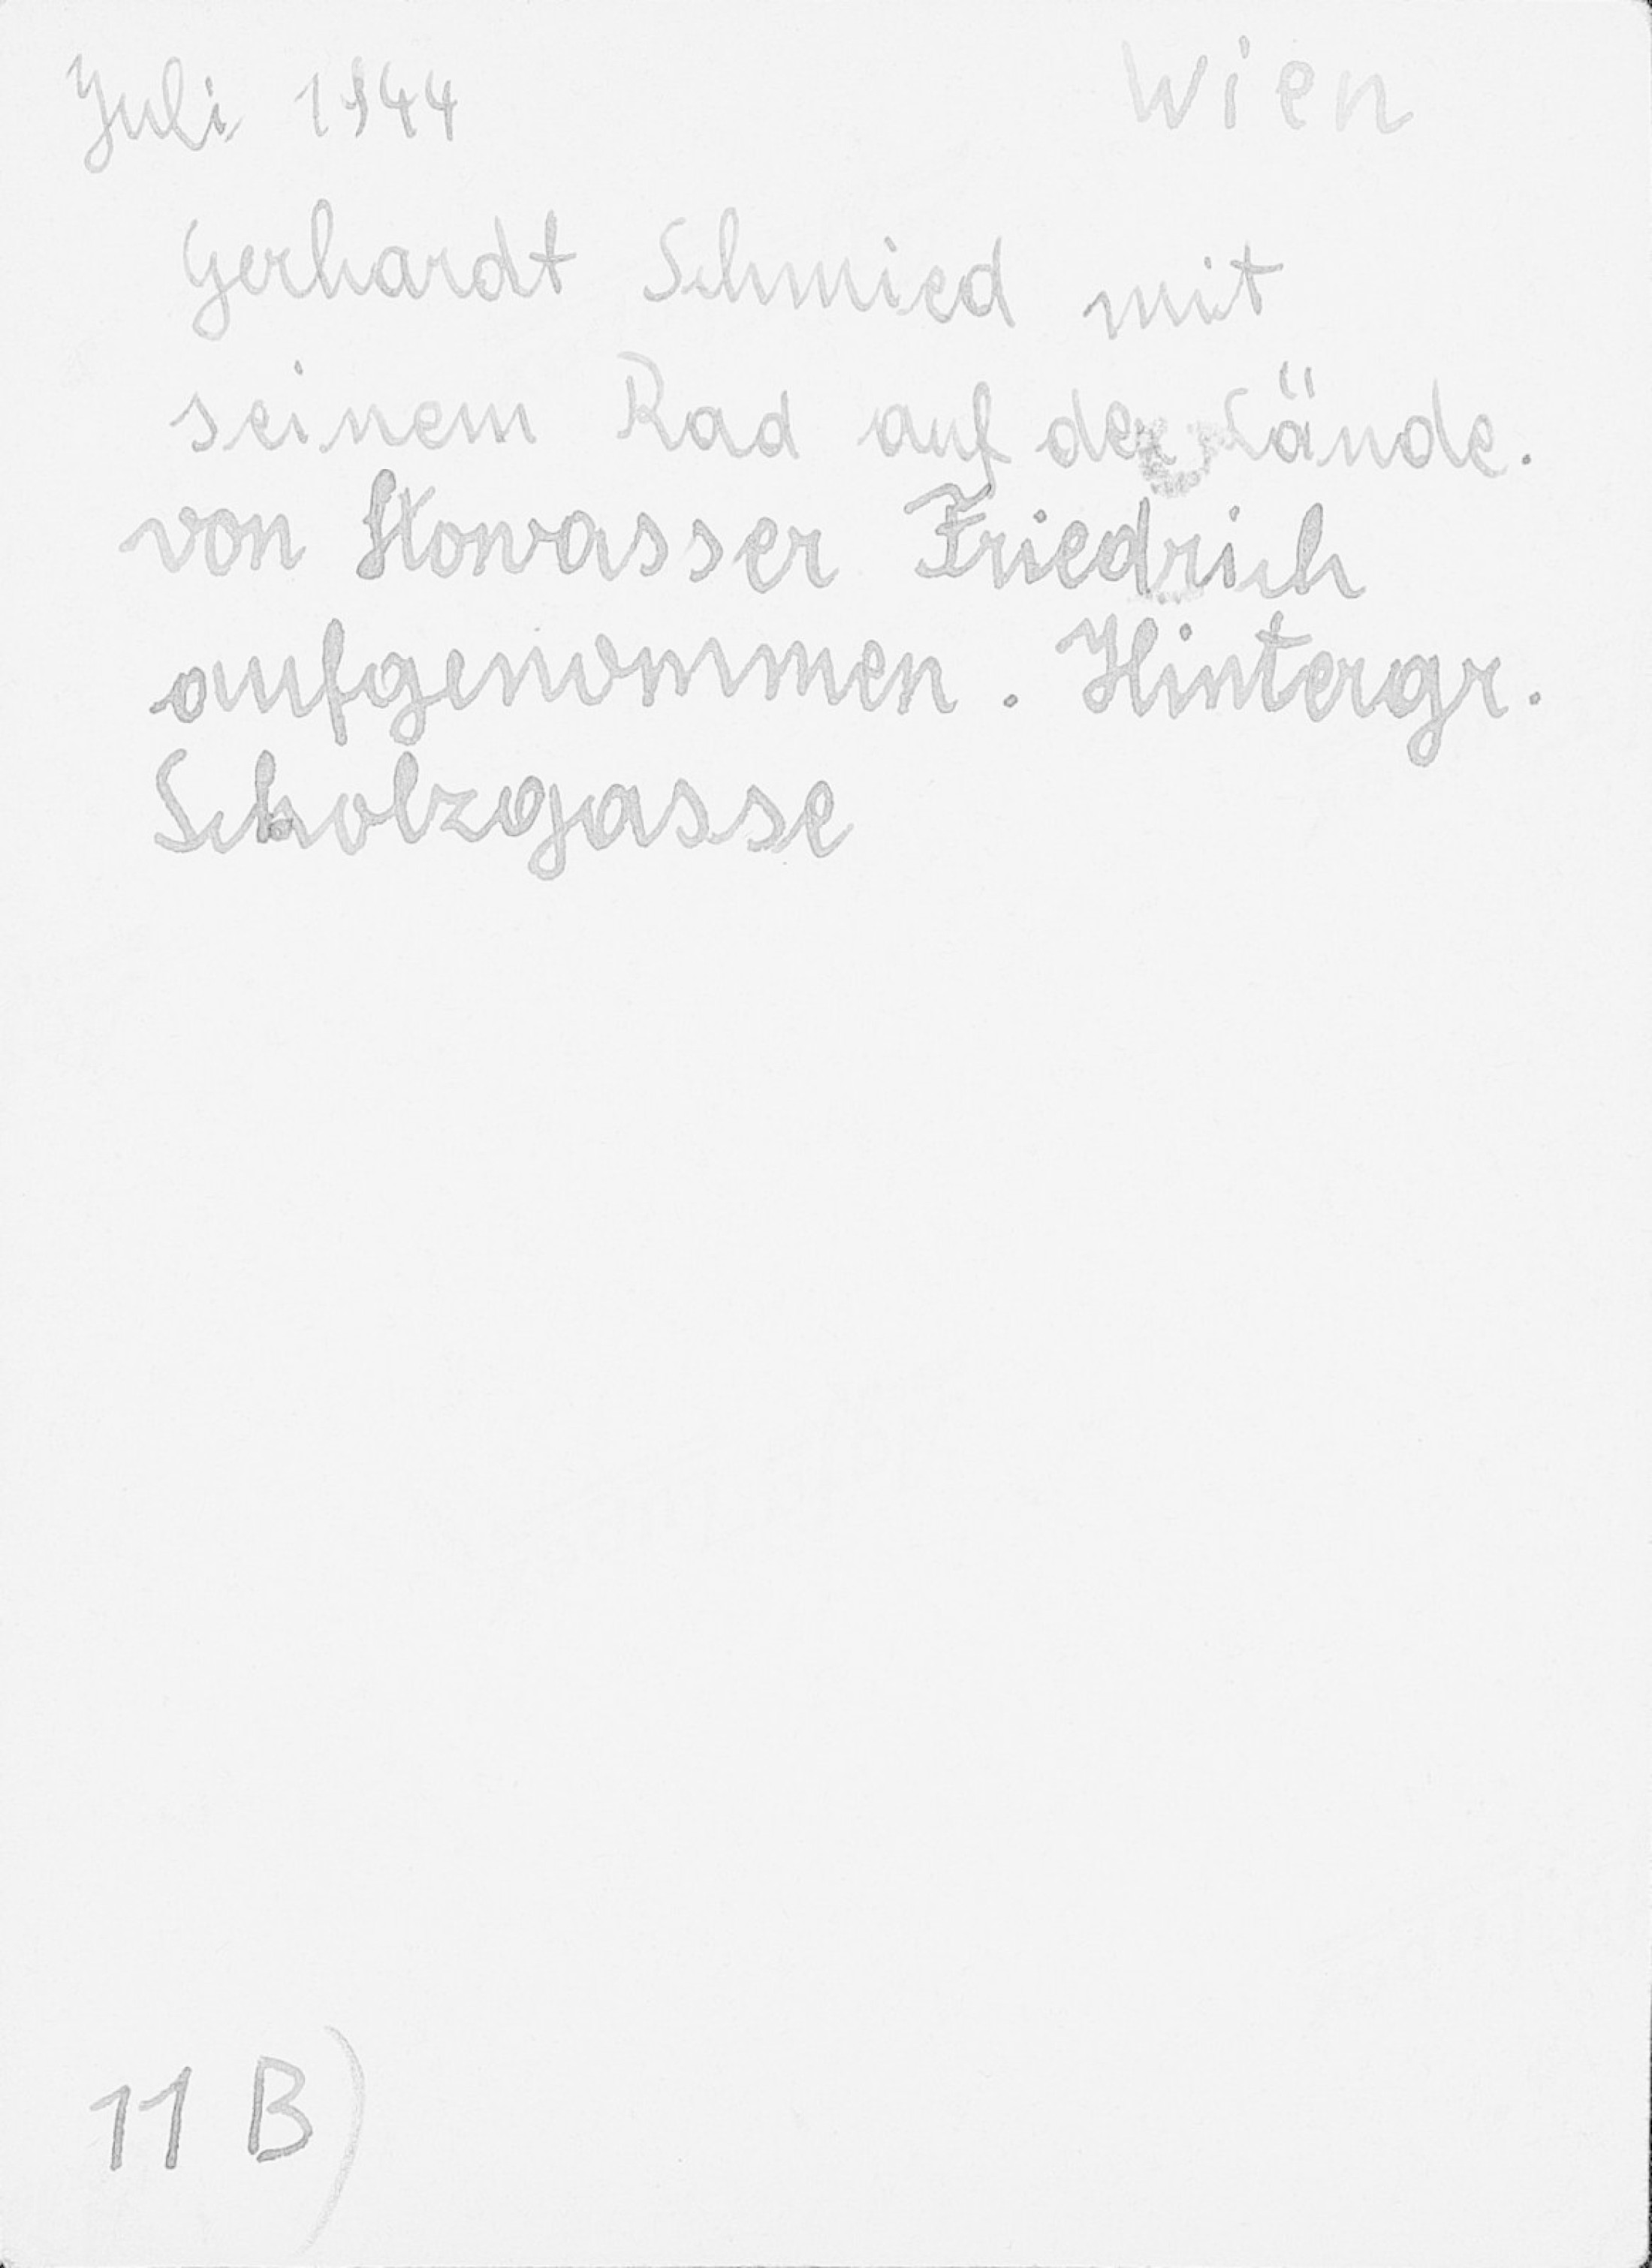 Juli 1944 Wien
Gerhardt Schmied mit
seinem Rad auf der Lände.
von Stowasser Friedrich
aufgenommen. Hintergr.
Scholzgasse
11 B)